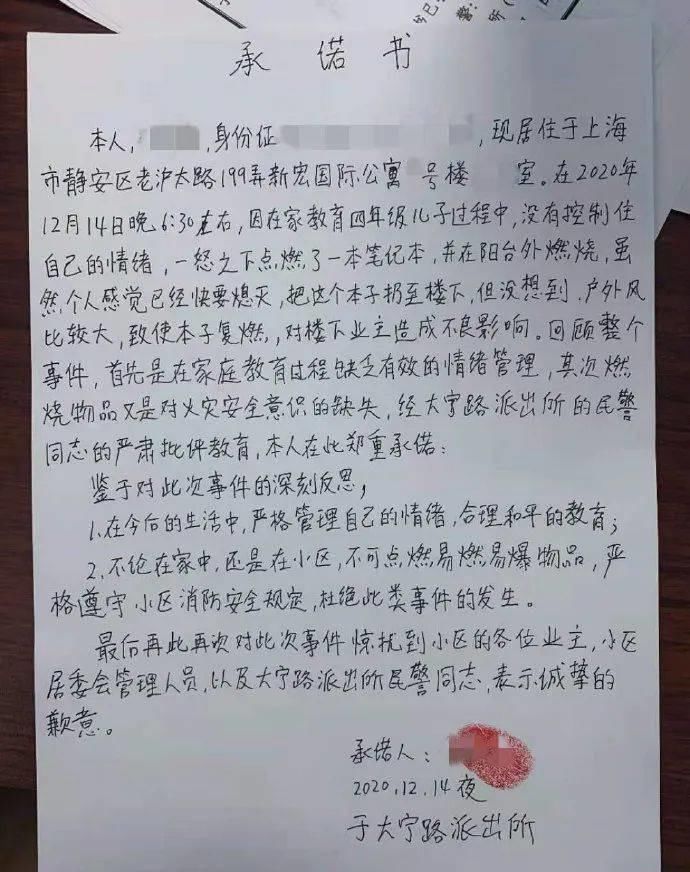 承诺书
本人, ,身份证 ,现居住于上海
市静安区老沪太路199弄新宏国际公寓 号楼 室。在2020年
12月14日晚6:30左右,因在家教育四年级儿子过程中,没有控制住
自己的情绪,一怒之下点燃了一本笔记本,并在阳台外燃烧,虽
然个人感觉已经快要熄灭,把这个本子扔至楼下,但没想到,户外风
比较大,致使本子复燃,对楼下业主造成不良影响。回顾整个
事件,首先是在家庭教育过程缺乏有效的情绪管理,其次燃
烧物品又是对火灾安全意识的缺失,经大宁路派出所的民警
同志的严肃批评教育,本人在此郑重承诺:
鉴于对此次事件的深刻反思,
1.在今后的生活中,严格管理自己的情绪,合理和平的教育;
2.不论在家中,还是在小区,不可点燃易燃易爆物品,严
格遵守小区消防安全规定,杜绝此类事件的发生。
最后再此再次对此次事件惊扰到小区的各位业主,小区
居委会管理人员,以及大宁路派出所民警同志,表示诚挚的
歉意。
承诺人:
2020.12.14夜
于大宁路派出所